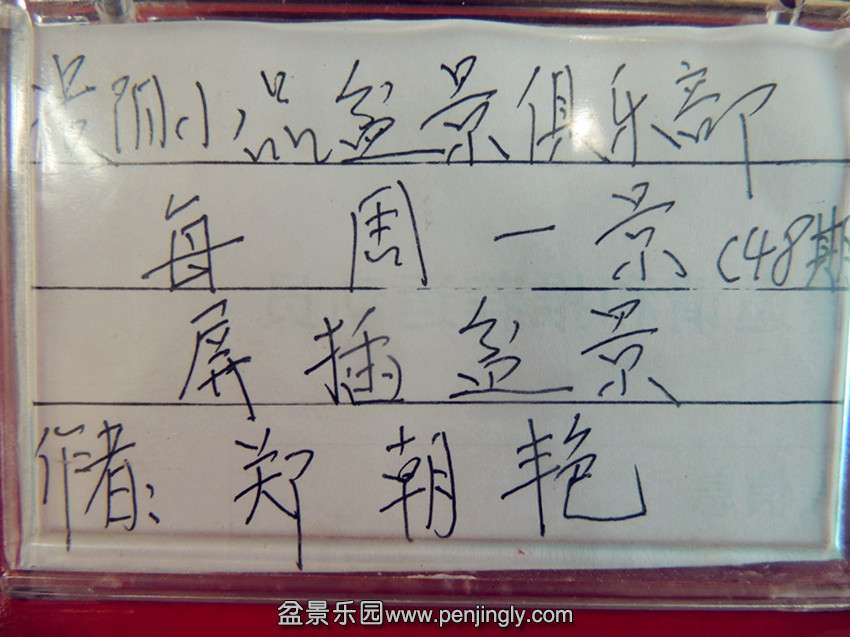 小品盆景俱乐部
每周一景(48期
屏插盆景
作者:郑朝艳
盆景乐园www.penjingly.com